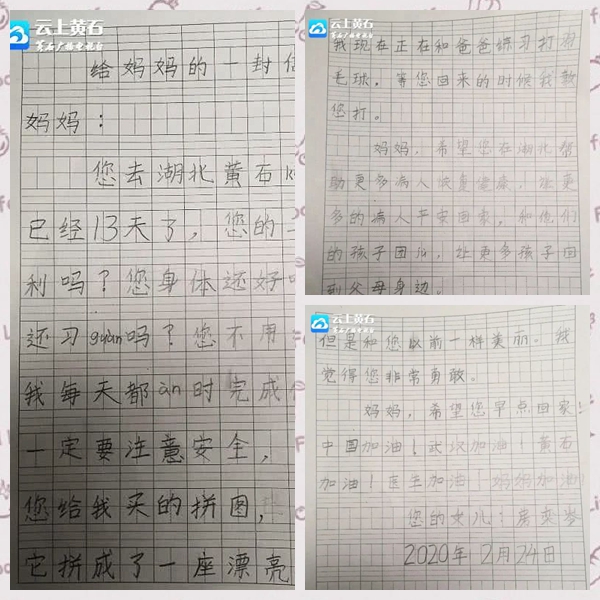 云上黄石
给妈妈的一封信
妈妈：
您去湖北黄石k
已经13天了，您的
利吗？您身体还好
还习guàn吗？您不用
我每天都àn时完成
一定要注意安全，
您给我买的拼图，
它拼成了一座漂亮
云上黄石
我现在正在和爸爸练习打羽
毛球，等您回来的时候我教
您打。
妈妈，希望您在湖北帮
助更多病人恢复健康，让更
多的病人平安回家，和他们
的孩子团瓜，让更多孩子回
到父母身边。
云上黄石
但是和您以前一样美丽。我
觉得您非常勇敢。
妈妈，希望您早点回家！
中国加油！武汉加油！黄石
加油！医生加油！妈妈加油！
您的女儿：房
2020年2月24日